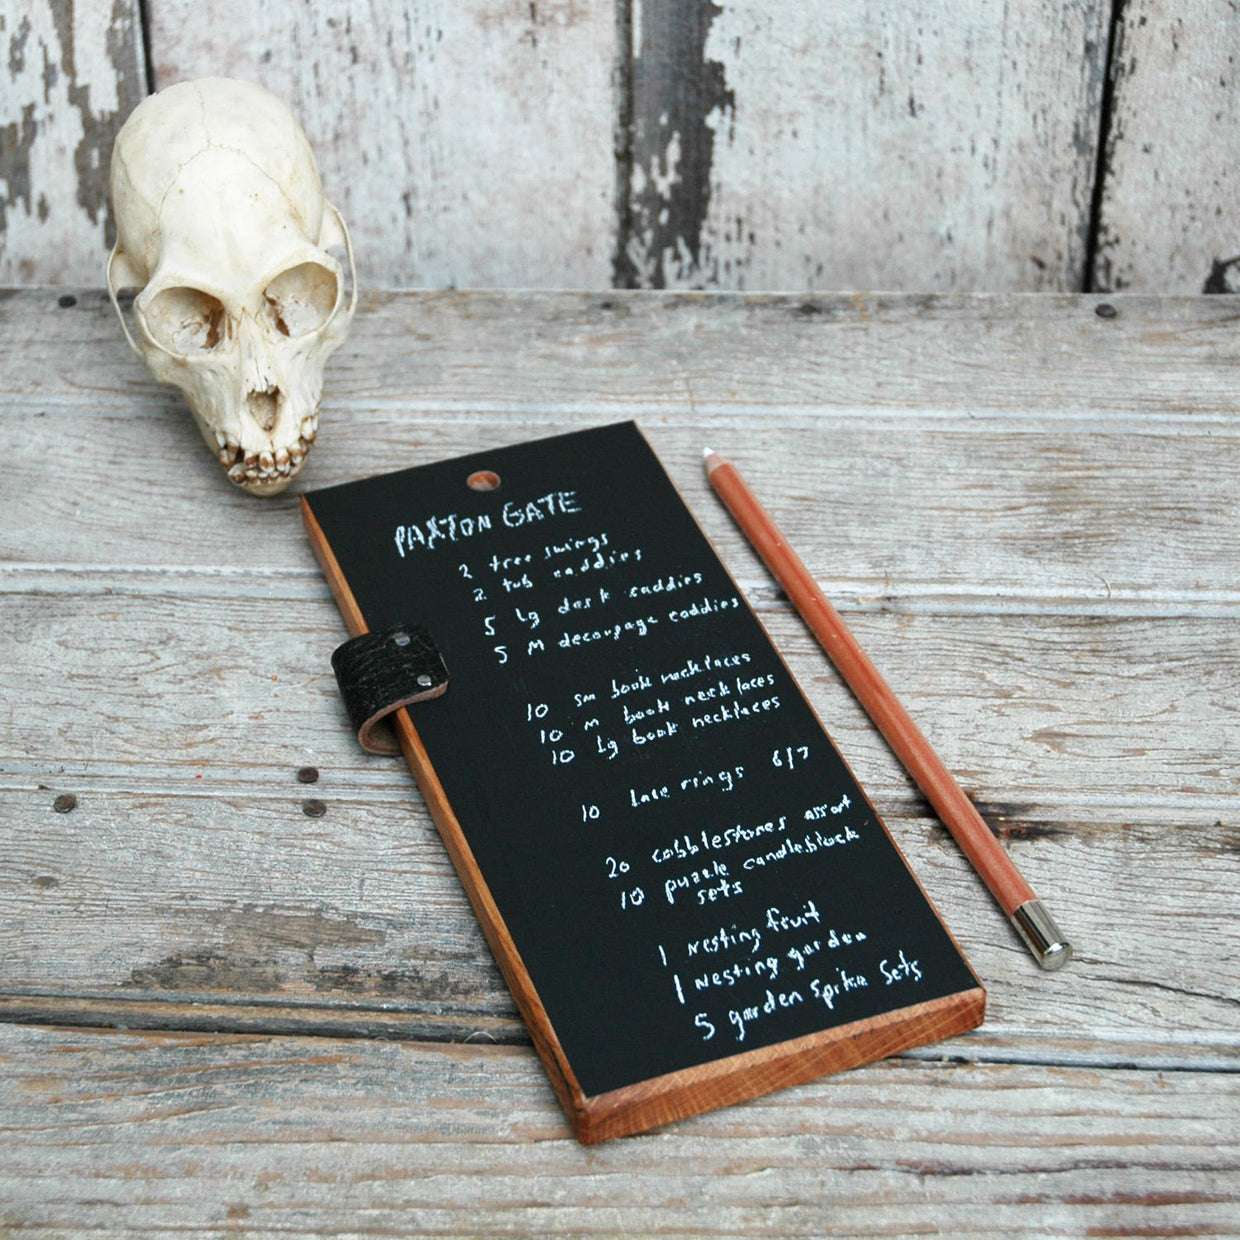 PAXTON GATE
2 tree swings
2 tub caddies
5 lg desk caddies
5 M decoupage caddies
10 sm book necklaces
10 m book necklaces
10 lg book necklaces
10 lace rings 6/7
20 cobblestones assort
10 puzzle candleblock
sets
1 nesting fruit
1 nesting garden
5 garden spike sets